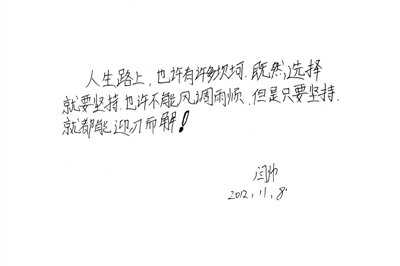 人生路上,也许有许多坎坷.既然选择
就要坚持.也许不能风调雨顺.但是只要坚持.
就都能迎刃而解!
闫帅
2012.11.8.